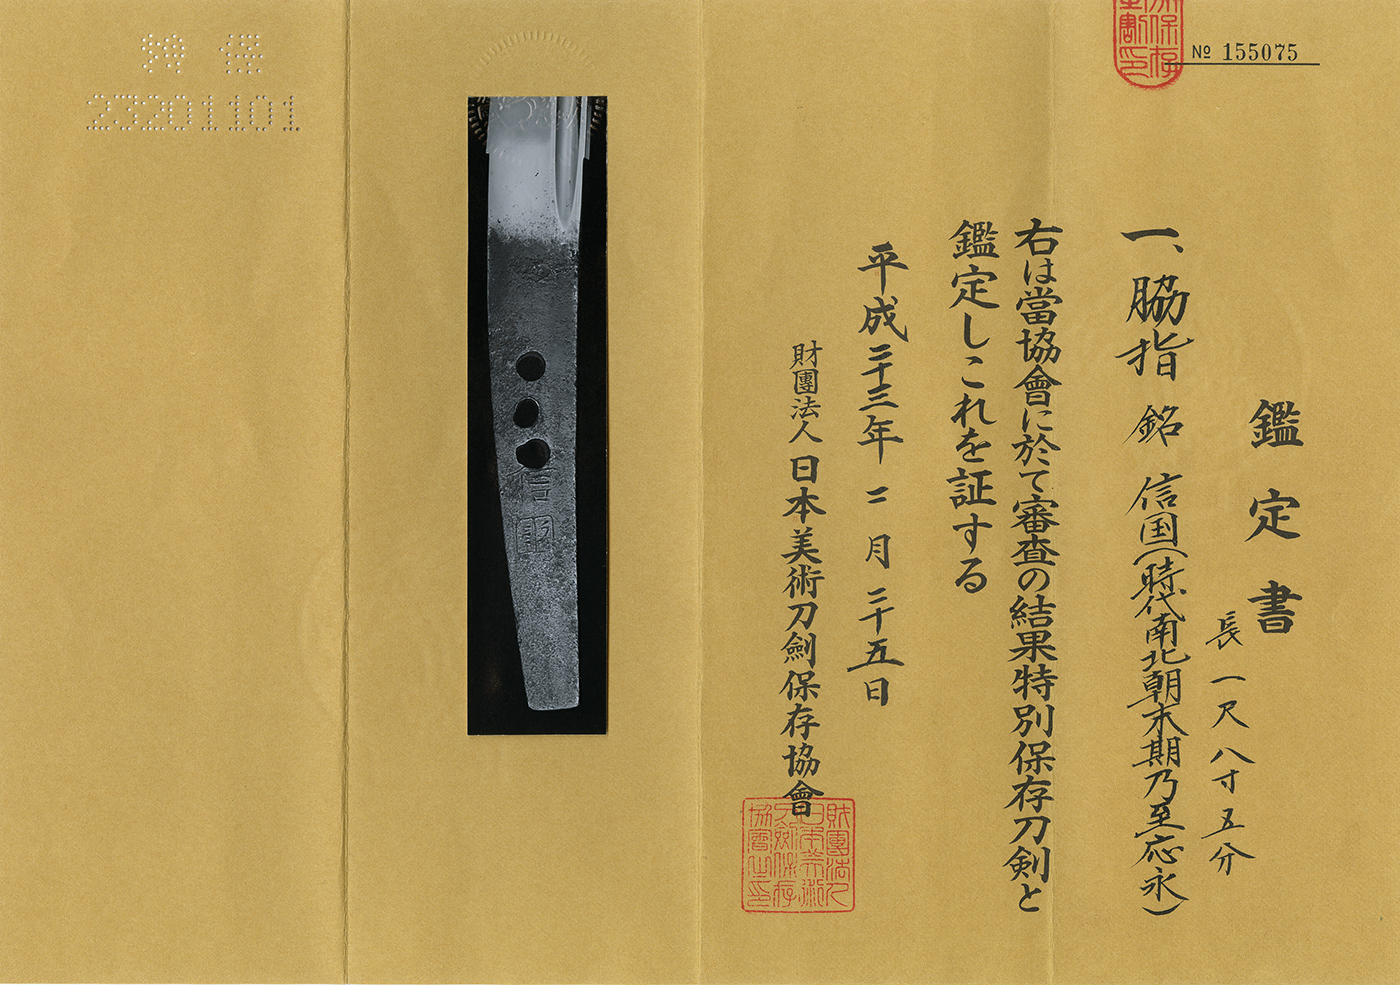 № 155075
鑑定書
長一尺八寸五分
一、脇指 銘 信国(時代南北朝末期乃至応永)
右は當協會に於て審査の結果特別保存刀剣と
鑑定しこれを証する
平成二十三年二月二十五日
財團法人日本美術刀劍保存協會
財團法人
日本美術
刀劍保存
協會之印
信国
特保
23201101